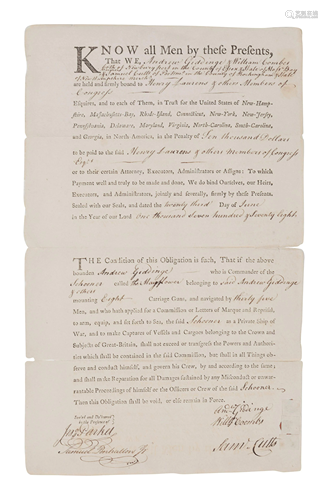 KNOW all Men by these Presents,
That WE, Andrew Giddinge & William Coombs
both of Newbury port in the County of Essex & State of
& Samuel Cutts of in the County of Rockingham & State
are held and firmly bound to Henry Laurens & others Members of
Congress
Esquires, and to each of Them, in Trust for the United States of New-Hamp-
shire, Massachusetts-Bay, Rhode-Island, Connecticut, New-York, New-Jersey,
Pennsylvania, Delaware, Maryland, Virginia, North-Carolina, South-Carolina,
and Georgia, in North-America, in the Penalty of Ten thousand Dollars
to be paid to the said Henry Laurens & other Members of Congress
Esqrs
or to their certain Attorney, Executors, Administrators or Assigns: To which
Payment well and truly to be made and done, We do bind Ourselves, our Heirs,
Executors, and Administrators, jointly and severally, firmly by these Presents.
Sealed with our Seals, and dated the twenty third Day of June
in the Year of our Lord One thousand Seven hundred & Seventy Eight.
THE Condition of this Obligation is such, That if the above
bounden Andrew Giddinge who is Commander of the
Schooner called the Mayflower belonging to Said Andrew Giddinge
& others
mounting Eight Carriage Guns, and navigated by thirty five
Men, and who hath applied for a Commission or Letters of Marque and Reprisal,
to arm, equip, and set forth to Sea, the said Schooner as a Private Ship of
War, and to make Captures of Vessels and Cargoes belonging to the Crown and
Subjects of Great-Britain, shall not exceed or transgress the Powers and Authorities
which shall be contained in the said Commission, but shall in all Things observe
and conduct himself, and govern his Crew, by and according to the same;
and shall make Reparation for all Damages sustained by any Misconduct or unwar-
rantable Proceedings of himself or the Officers or Crew of the said Schooner.
Then this Obligation shall be void, or else remain in Force.
Sealed and Delivered
in the Presence of
Giddinge
Willm Coombs
Saml Cutts